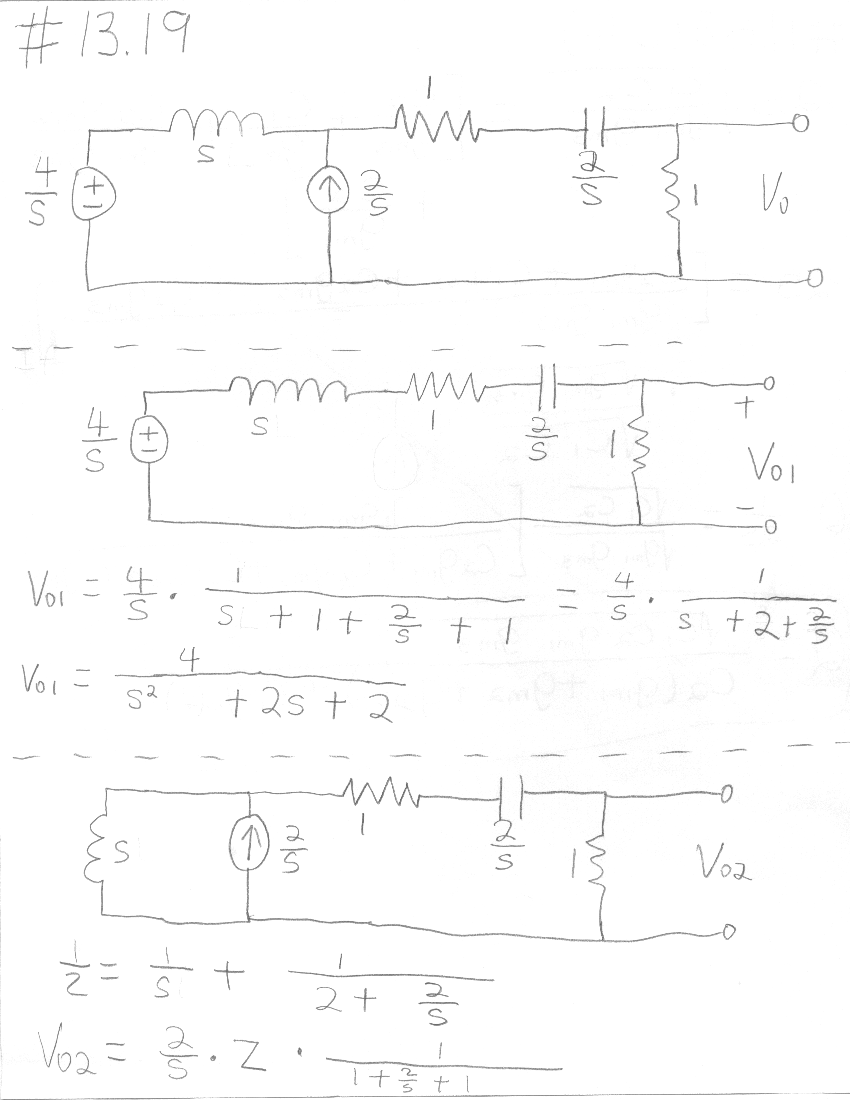 #13.19
1
s
4/s
+
−
2/s
2/s
1
V₀
4/s
+
−
s
1
2/s
1
+
V₀₁
−
V₀₁ = 4/s · 1/(s + 1 + 2/s + 1) = 4/s · 1/(s + 2 + 2/s)
V₀₁ = 4/(s² + 2s + 2)
s
2/s
1
2/s
1
V₀₂
1/Z = 1/s + 1/(2 + 2/s)
V₀₂ = 2/s · Z · 1/(1 + 2/s + 1)